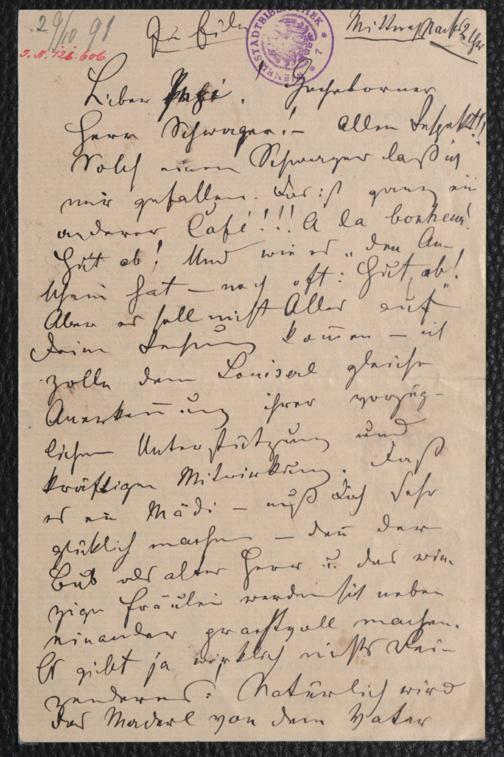 29/10 91
J.N. 122.606
Mittwoch Nachts 2 Uhr
Lieber Papi. Hochgeborner
Herr Schwager! – Allen Respekt!!
Solch einen Schwager laß ich
mir gefallen. Das ist ganz ein
anderer Café!!! A la bonheur!
Hut ab! Und wie es „den An-
schein hat – noch oft: Hut ab!"
Aber es soll nicht Alles auf
Deine Rechnung kommen – ich
zolle dem Louiserl gleiche
Anerkennung ihrer vorzüg-
lichen Unterstützung und
kräftigen Mitwirkung. Daß
es ein Mädi – muß Dich sehr
glücklich machen – denn der
Bub als alter Herr u. das win-
zige Fräulein werden sich neben
einander prachtvoll machen.
Es gibt ja wirklich nichts Rei-
zenderes! Natürlich wird
das Maderl von dem Vater